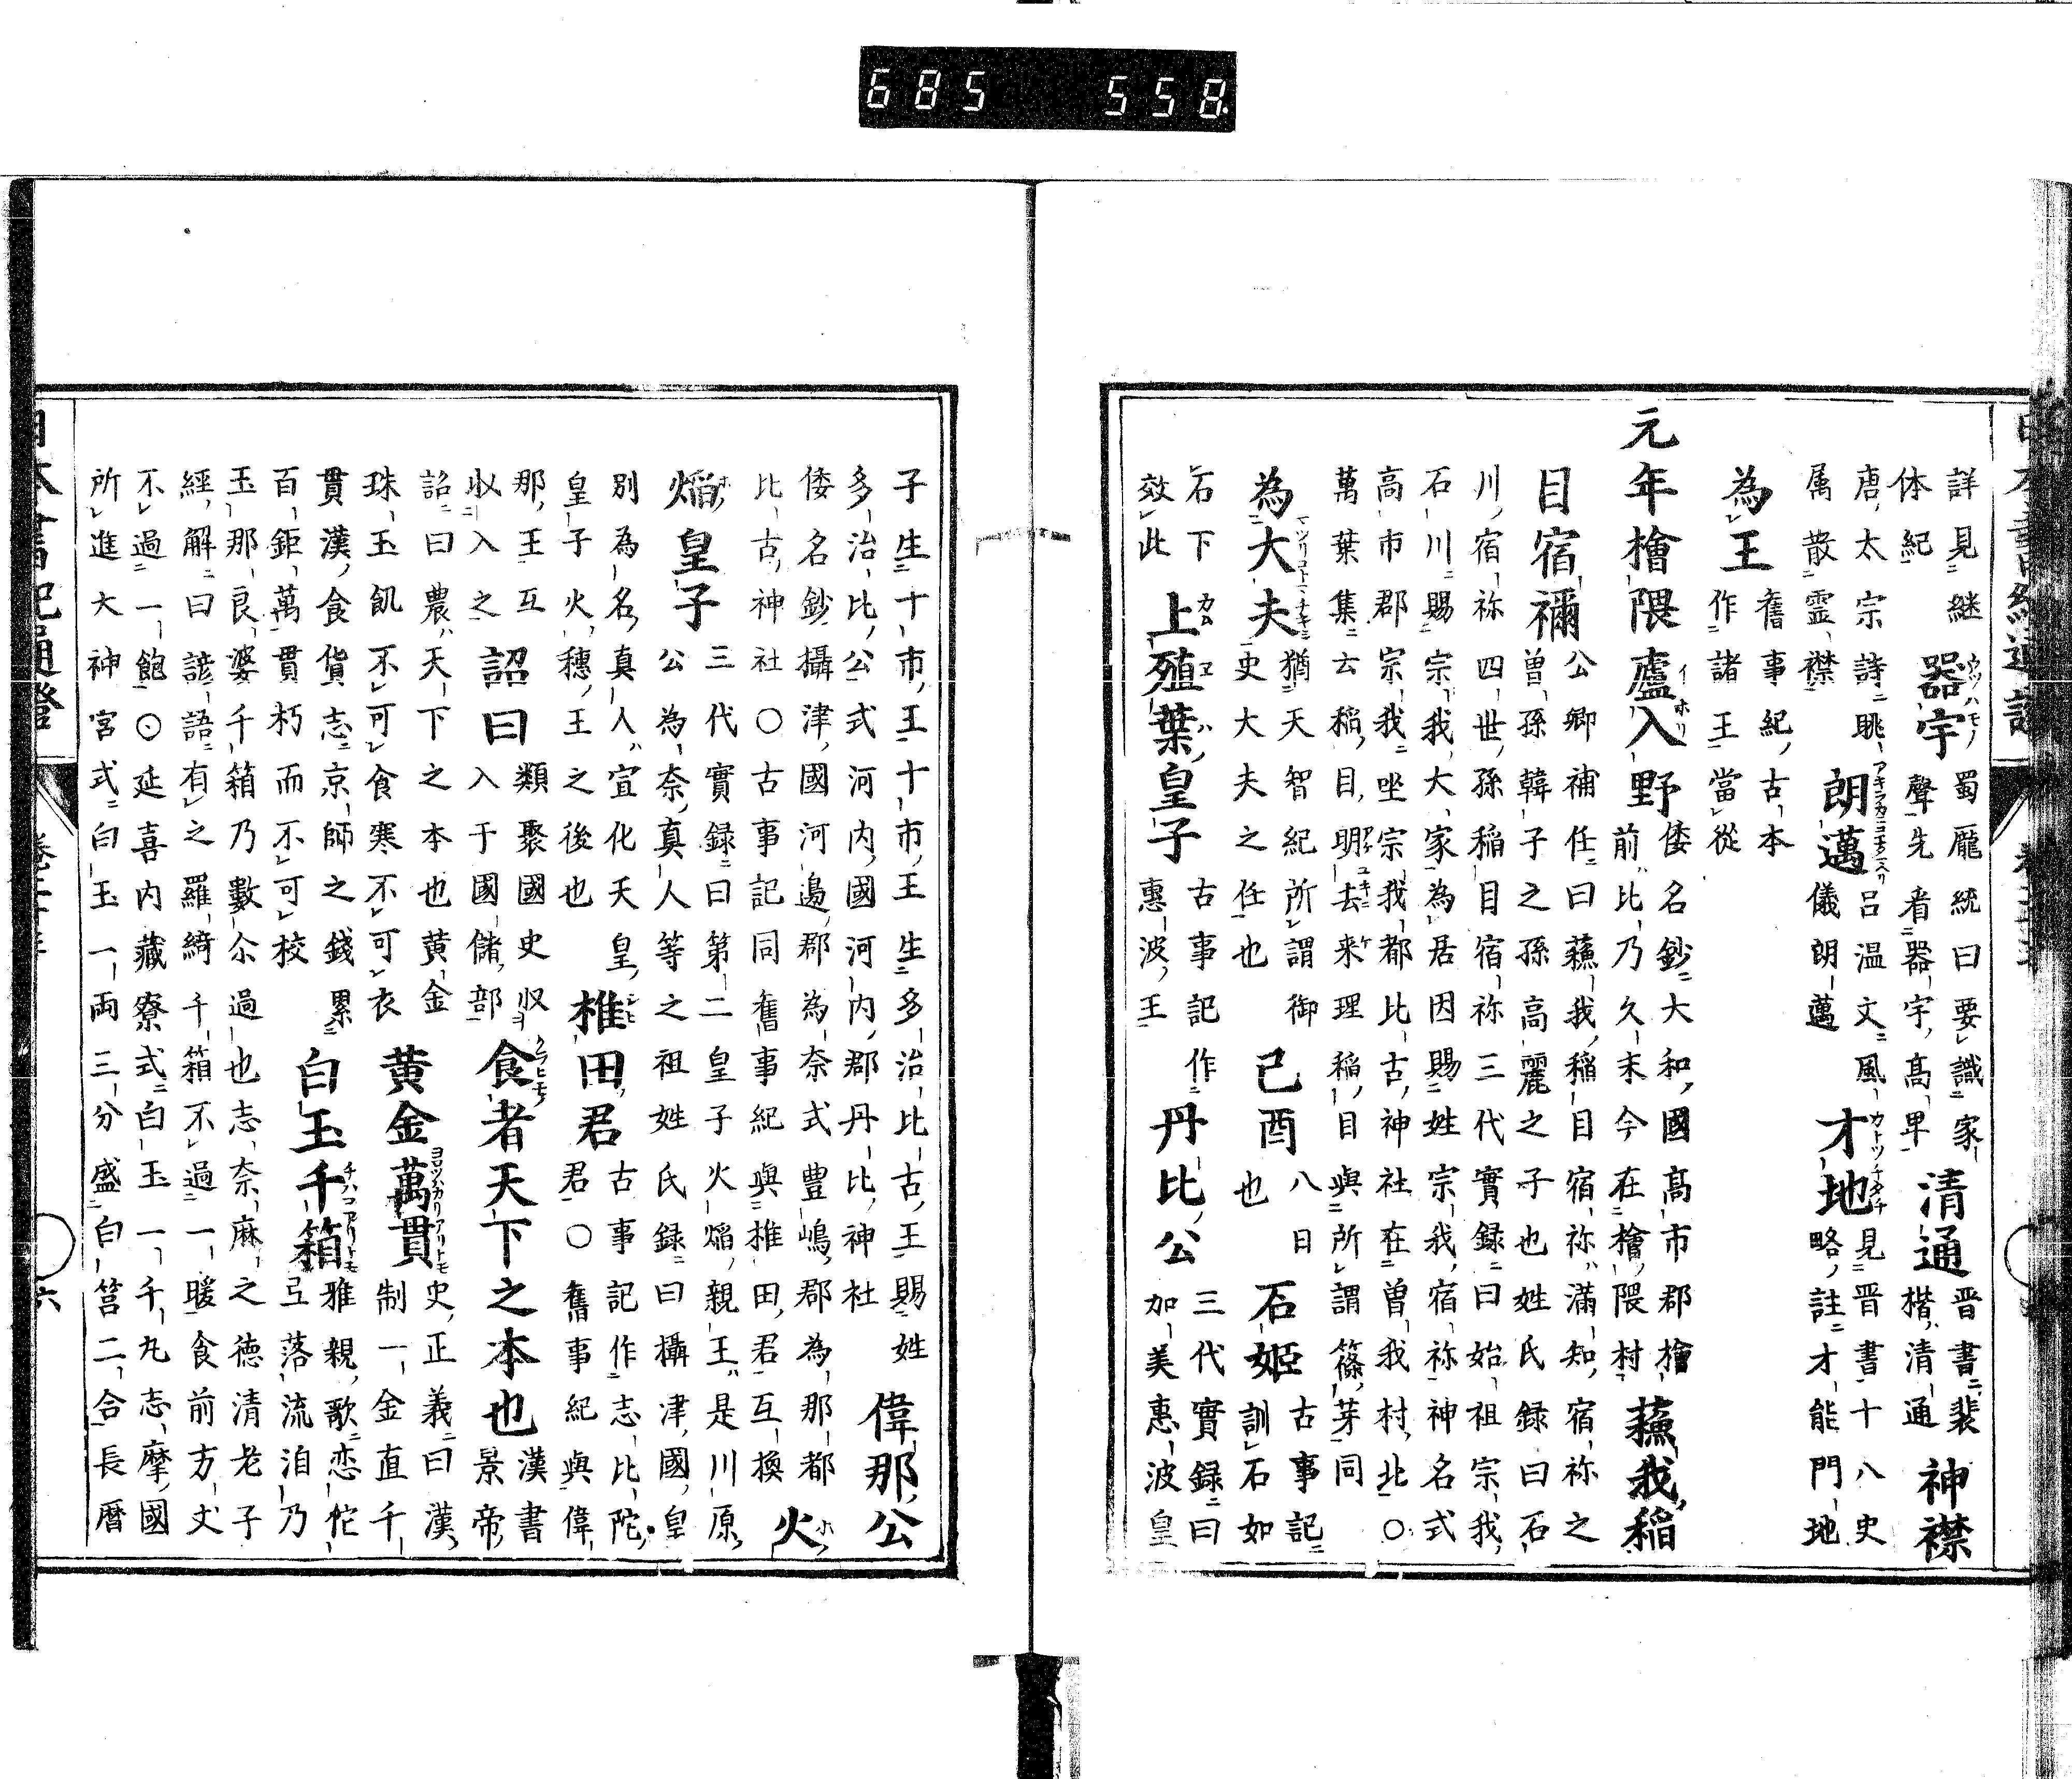 685 558
詳見継体紀 器宇 蜀龐統曰要識家聲先看器宇高卑 清通 晋書裴楷清通 神襟
唐太宗詩眺属散霊襟 朗邁 呂温文風儀朗邁 才地 見晋書十八史略註才能門地
為王 舊事紀古本作諸王當從
元年檜隈廬入野 倭名鈔大和國高市郡檜前比乃久末今在檜隈村 蘓我稲
目宿禰 公卿補任曰蘓我稲目宿祢満知宿祢之曽孫韓子之孫高麗之子也姓氏録曰石
川宿祢四世孫稲目宿祢三代實録曰始祖宗我
石川賜宗我大家為居因賜姓宗我宿祢神名式
高市郡宗我坐宗我都比古神社在曽我村北〇
萬葉集云稲目明去来理稲目與所謂篠芽同
為大夫 猶天智紀所謂御史大夫之任也 己酉 八日也 石姫 古事記訓石如
石下效此 上殖葉皇子 古事記作惠波王 丹比公 三代實録曰加美惠波皇
子生十市王十市王生多治比古王賜姓多治比公式河内國河内郡丹比神社 偉那公
倭名鈔攝津國河邉郡為奈式豊嶋郡為那都比古神社〇古事記同舊事紀與椎田君互換 火
焔皇子 三代實録曰第二皇子火焔親王是川原公為奈真人等之祖姓氏録曰攝津國皇
別為名真人宣化天皇皇子火穂王之後也 椎田君 古事記作志比陀君〇舊事紀與偉
那王互収入之 詔曰 類聚國史収入于國儲部 食者天下之本也 漢書景帝
詔曰農天下之本也黄金珠玉飢不可食寒不可衣 黄金萬貫 史正義曰漢制一金直千
貫漢食貨志京師之錢累百鉅萬貫朽而不可校 白玉千箱 雅親歌恋佗弖落流泪乃
玉那良婆千箱乃數尒過也志奈麻之德清老子
經解曰諺語有之羅綺千箱不過一暖食前方丈
不過一飽⊙延喜内藏寮式白玉一千丸志摩國
所進大神宮式白玉一両三分盛白筥二合長暦
六